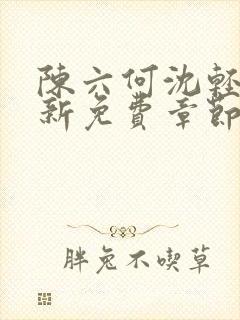 陳六何沈輕
新免費章節
胖兔不喫草